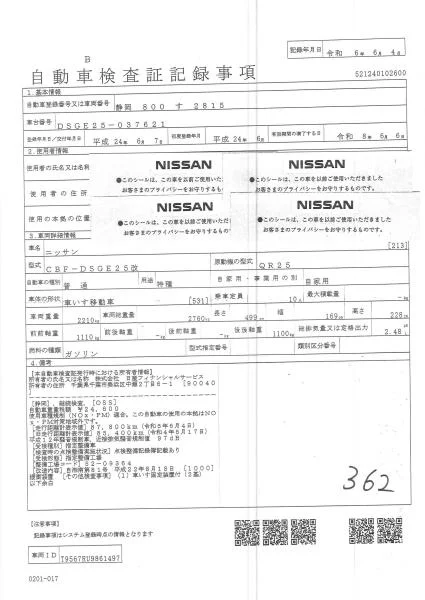 B
記録年月日 令和 6年 6月 4日
自動車検査証記録事項
521240102600
1.基本情報
自動車登録番号又は車両番号 静岡 800 す 2815
車台番号 DSGE25-037621
登録年月日/交付年月日 平成 24年 6月 7日 初度登録年月 平成 24年 6月 有効期間の満了する日 令和 8年 6月 6日
2.使用者情報
使用者の氏名又は名称
使用者の住所
使用の本拠の位置
NISSAN NISSAN
●このシールは、この車を以前ご使用いただ ●このシールは、この車を以前ご使用いただきました
お客さまのプライバシーをお守りするもの お客さまのプライバシーをお守りするものです。
NISSAN NISSAN
●このシールは、この車を以前ご使用いただ ●このシールは、この車を以前ご使用いただきました
お客さまのプライバシーをお守りするもの お客さまのプライバシーをお守りするものです。
3.車両詳細情報
車名 ニッサン [213]
型式 CBF-DSGE25改 原動機の型式 QR25
自動車の種別 普通 用途 特種 自家用・事業用の別 自家用
車体の形状 車いす移動車 [531] 乗車定員 10人 最大積載量 -kg
車両重量 2210kg 車両総重量 2760kg 長さ 499cm 幅 169cm 高さ 228cm
前前軸重 1110kg 前後軸重 -kg 後前軸重 -kg 後後軸重 1100kg 総排気量又は定格出力 2.48L
燃料の種類 ガソリン 型式指定番号 類別区分番号
4.備考
[本自動車検査証発行時における所有者情報]
所有者の氏名又は名称 株式会社 日産フィナンシャルサービス
[静岡]、継続検査、[OSS]
自動車重量税額 ¥24,600
使用車種規制(NOx・PM)適合、この自動車の使用の本拠はNO
x・PM対策地域外です。
[走行距離計表示値]87,800km(令和6年6月4日)
[旧走行距離計表示値]85,400km(令和4年6月17日)
平成12年騒音規制車、近接排気騒音規制値 97dB
[受検種別]指定整備車
[検査時の点検整備実施状況]点検整備記録簿記載あり
[受検形態]指定整備工場
[整備工場コード]52-09364
以下余白
362
[注意事項]
記録事項はシステム登録時点の情報となります
車両ID T9567RU9861497
0201-017